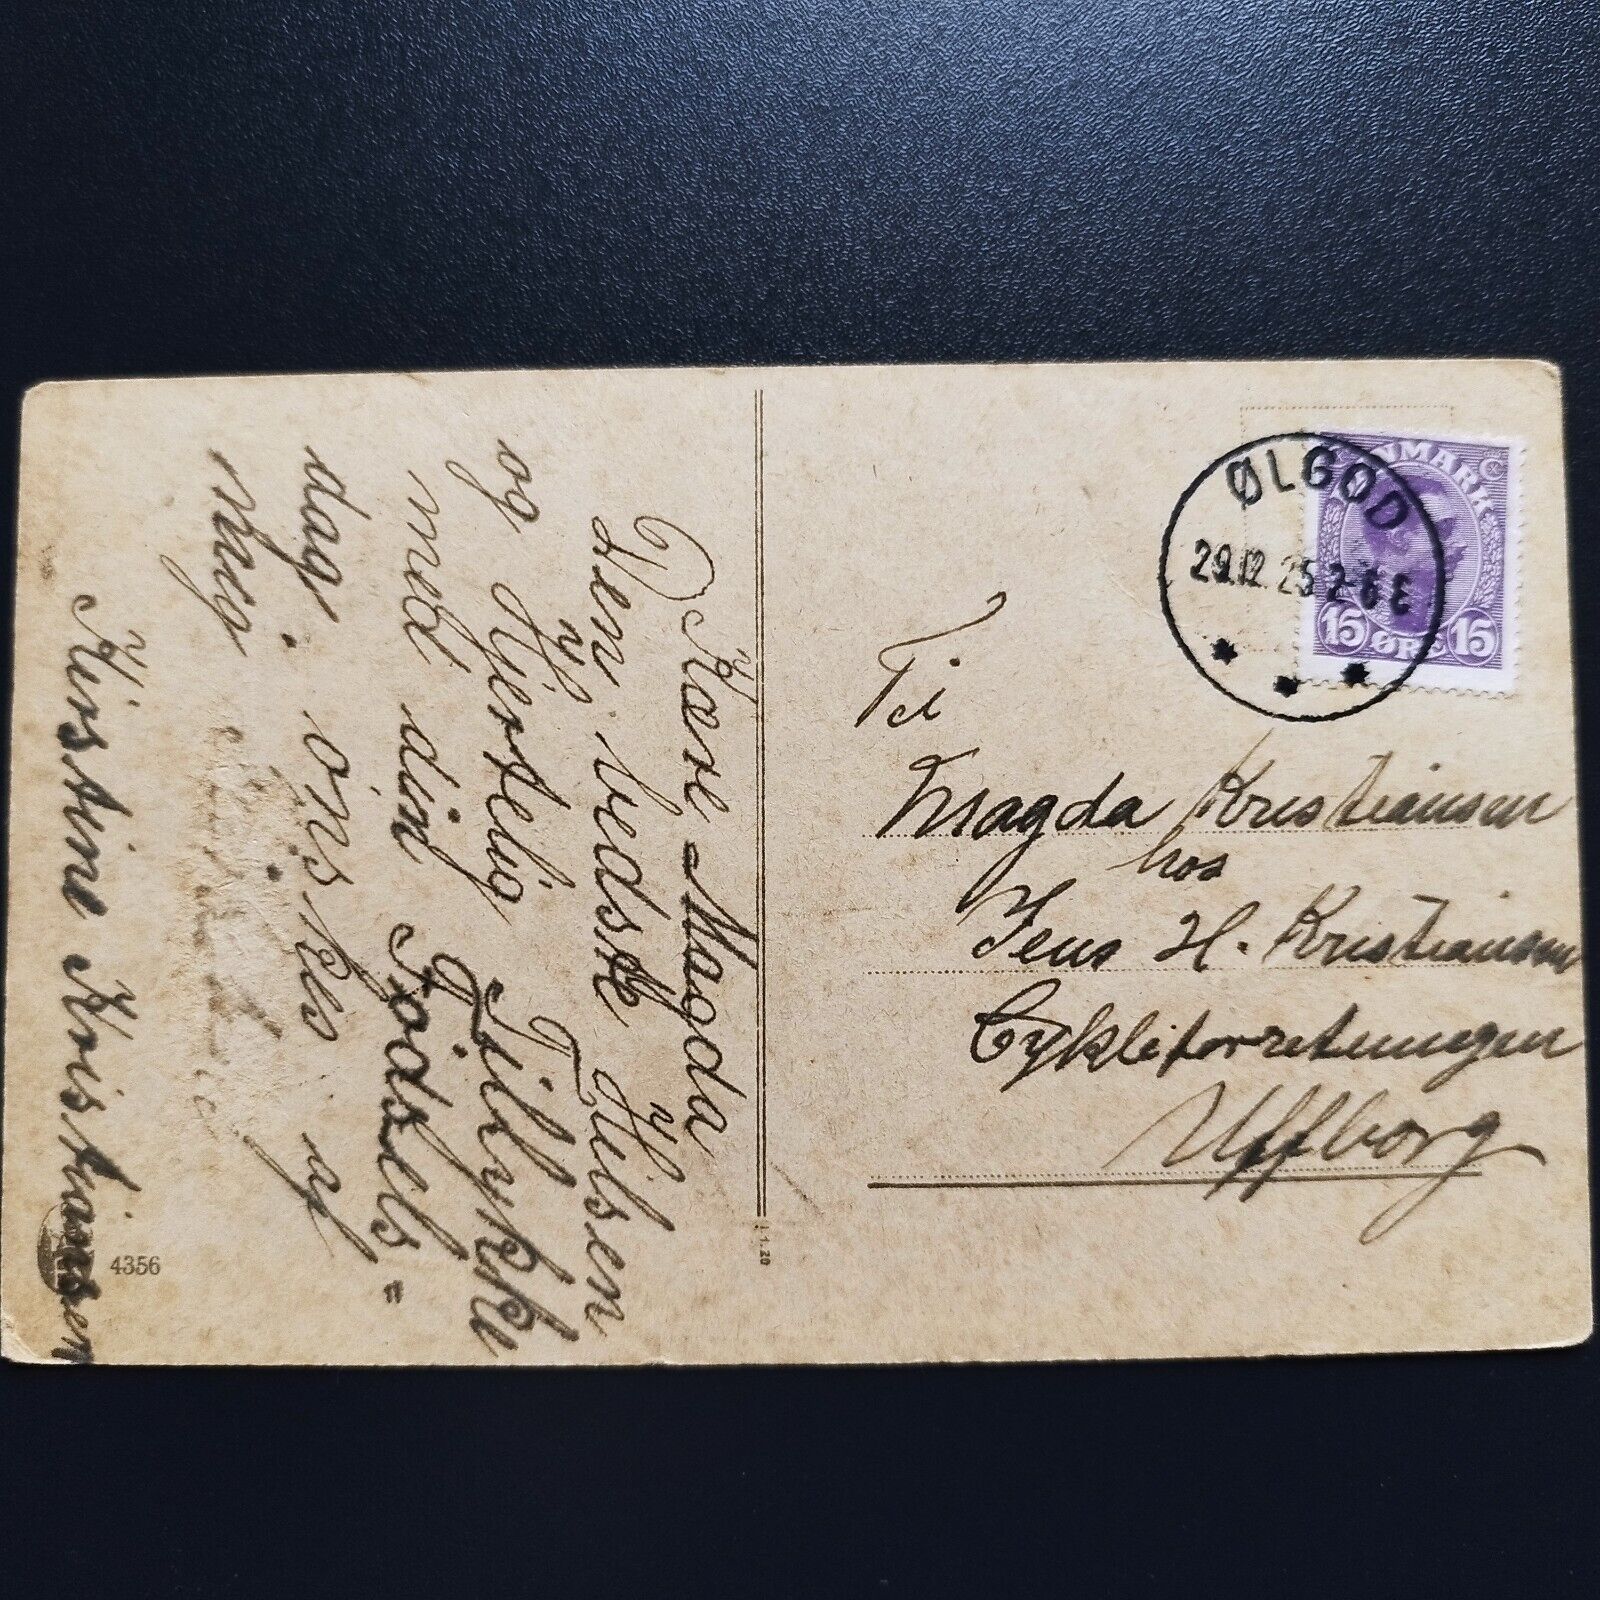 Kære Magda
Den bedste Hilsen
og Hjertelig Tillykke
med din Födsels=
dag. önskes af
mig
Kirstine Kristiansen
4356
1.20
ØLGOD
29.12.25 2-6 E
DANMARK
15 ØRE 15
Til
Magda Kristiansen
hos
Jens H. Kristiansen
Cykleforretningen
Uffborg